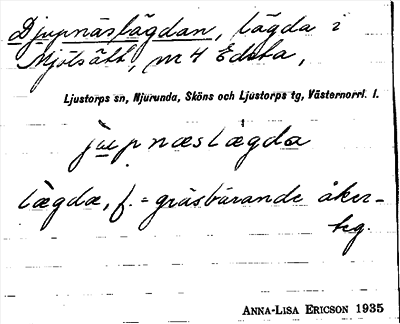 Djupnäslägdan, lägda i
Mjölsätt, m 4 Edsta,
Ljustorps sn, Njurunda, Sköns och Ljustorps tg, Västernorrl. l.
jupnæslægda
lægda, f. = gräsbärande åker-
teg.
ANNA-LISA ERICSON 1935